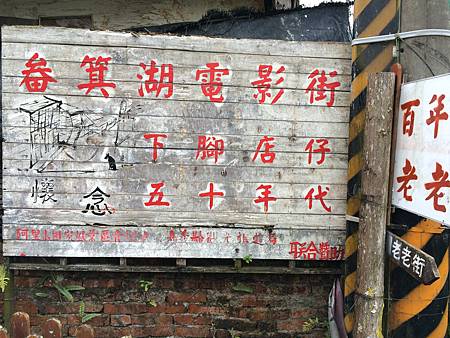 畚箕湖電影街
下腳店仔
懷念五十年代
阿里山
聯合
百年
老老
老老街